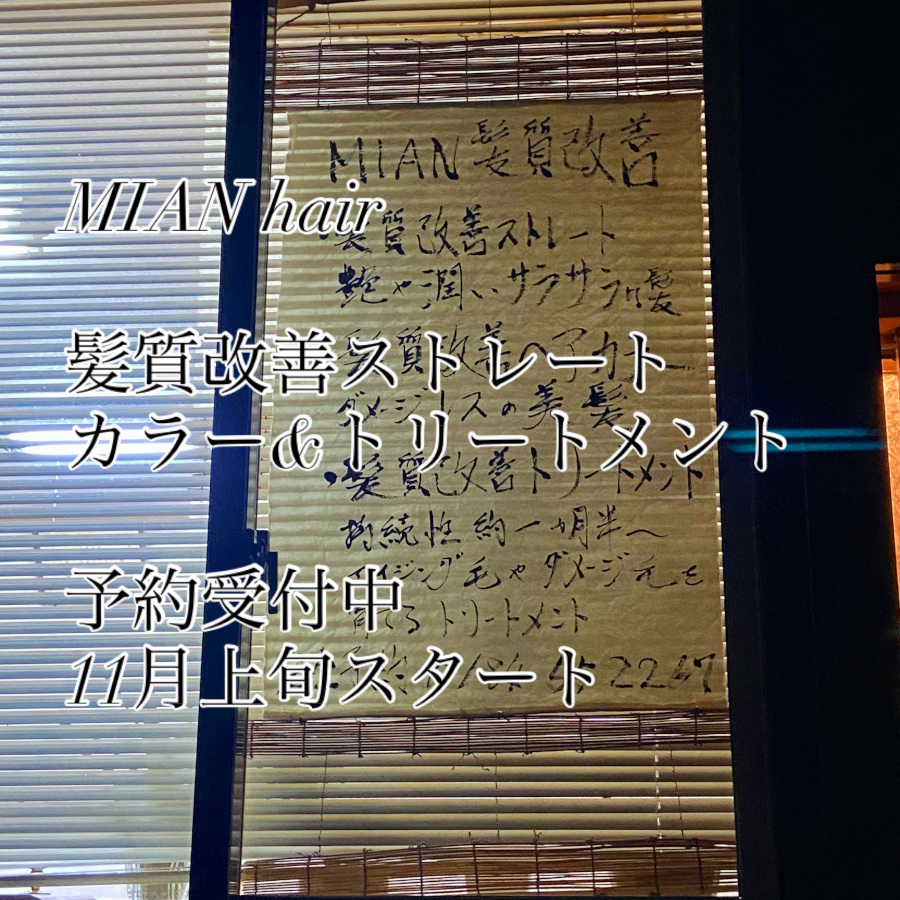 MIAN hair
髪質改善ストレート
カラー&トリートメント
予約受付中
11月上旬スタート
MIAN髪質改善
・髪質改善ストレート
艶や潤いサラサラ髪
髪質改善ヘアカラー
ダメージレスの美髪
・髪質改善トリートメント
持続性約一ヵ月半へ
エイジング毛やダメージ毛を
育てるトリートメント
2267